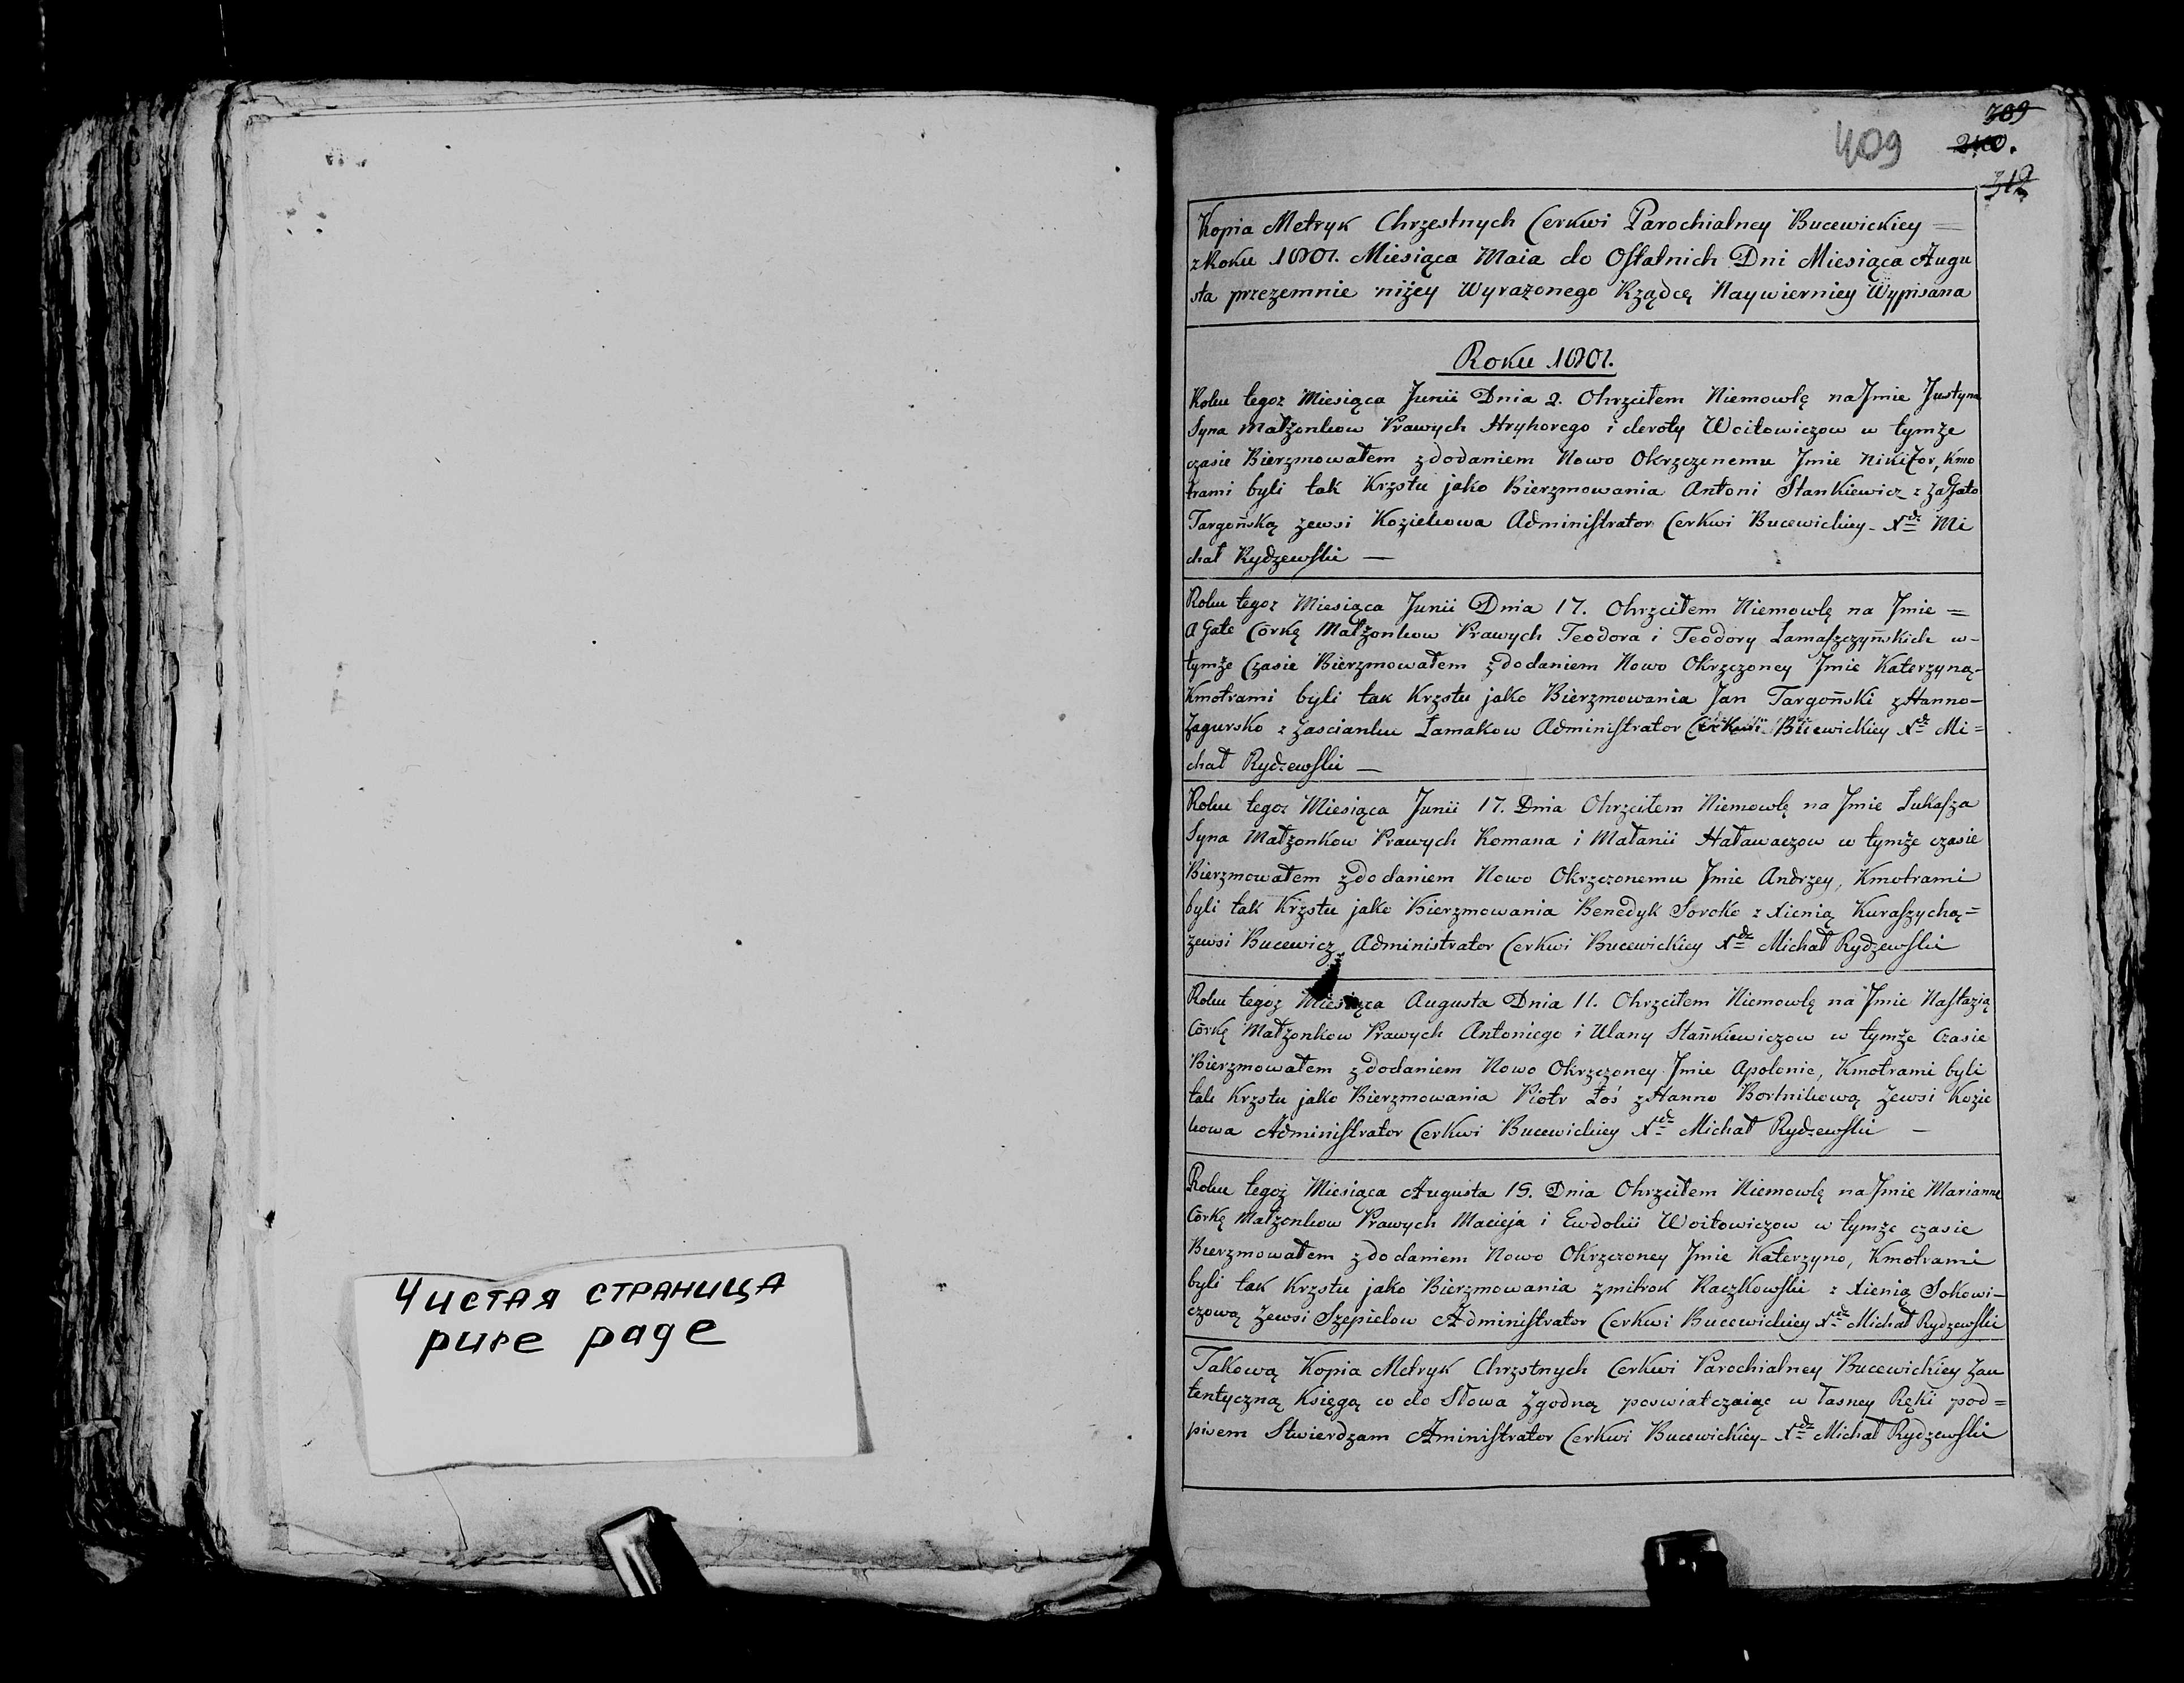 Чистая страница
pure page
309
409 240.
312
Kopia Metryk Chrzestnych Cerkwi Parochialney Bucewickiey =
z Roku 1801. Miesiąca Maia do Ostatnich Dni Miesiąca Augu
sta przezemnie niżey Wyrażonego Rządcę Naywierniey Wypisana
Roku 1801.
Roku tegoz Miesiąca Junii Dnia 2. Ohrzciłem Niemowlę na Jmie Justyna
Syna Małżonkow Prawych Hryhorego i deroty Woitowiczow w tymże
czasie Bierzmowałem z dodaniem Nowo Okrzczenemu Jmie Nikifor, Kmo
trami byli tak Krzstu jako Bierzmowania Antoni Stankiewicz z
Targońską zewsi Koziekowa Administrator Cerkwi Bucewickiey - Xdz Mi
chał Rydzewski —
Roku tegoz Miesiąca Junii Dnia 17. Ohrzciłem Niemowlę na Jmie =
AGate Córkę Małżonkow Prawych Teodora i Teodory Łamaszczyńskich w -
tymże Czasie Bierzmowałem z dodaniem Nowo Okrzczoney Jmie Katerzyną -
Kmotrami byli tak Krzstu jako Bierzmowania Jan Targoński z Hanno -
Zagursko z Zascianku Łamakow Administrator Cerkwi Bucewickiey Xdz Mi =
chał Rydzewski —
Roku tegoz Miesiąca Junii 17. Dnia Ohrzciłem Niemowlę na Jmie Łukasza
Syna Małżonkow Prawych Romana i Małanii Haławaczow w tymże czasie
Bierzmowałem z dodaniem Nowo Okrzczonemu Jmie Andrzey, Kmotrami
byli tak Krzstu jako Bierzmowania Benedyk Soroko z Xienią Kuraszychą =
zewsi Bucewicz Administrator Cerkwi Bucewickiey Xdz Michał Rydzewski
Roku tegoż Miesiąca Augusta Dnia 11. Ohrzciłem Niemowlę na Jmie Nastazią
Córkę Małżonkow Prawych Antoniego i Ulany Stańkiewiczow w tymże Czasie
Bierzmowałem z dodaniem Nowo Okrzczoney Jmie Apolonie, Kmotrami byli
tak Krzstu jako Bierzmowania Piotr Łoś z Hanno Bortnikową Zewsi Kozie
kowa Administrator Cerkwi Bucewickiey Xdz Michał Rydzewski —
Roku tegoż Miesiąca Augusta 15. Dnia Ohrzciłem Niemowlę na Jmie Marianne
Córkę Małżonkow Prawych Macieja i Ewdokii Woitowiczow w tymże czasie
Bierzmowałem z dodaniem Nowo Okrzczoney Jmie Katerzyno, Kmotrami
byli tak Krzstu jako Bierzmowania zmitrok Raczkowski z Xienią Sokowi -
czową Zewsi Szepielow Administrator Cerkwi Bucewickiey Xdz Michał Rydzewski
Takową Kopia Metryk Chrzstnych Cerkwi Parochialney Bucewickiey Zau
tentyczną Księgą co do Słowa Zgodną poswiatczaiąc w łasney Ręki pod =
pisem Stwierdzam Aministrator Cerkwi Bucewickiey - Xdz Michał Rydzewski